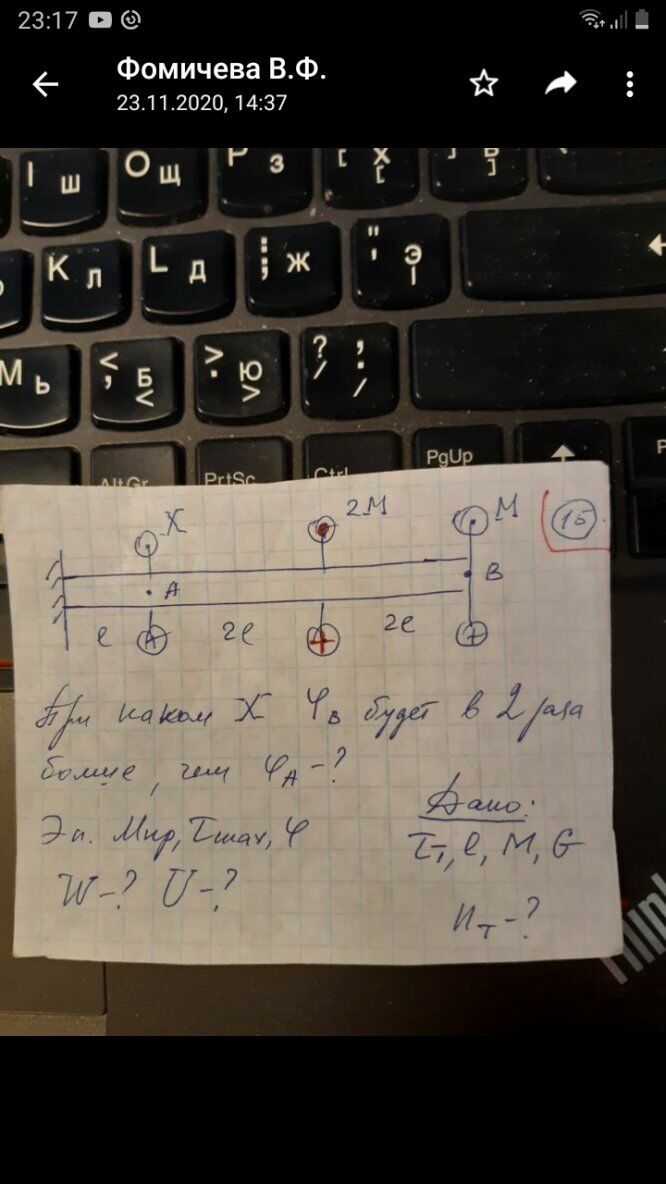 23:17
Фомичева В.Ф.
23.11.2020, 14:37
I Ш
O Щ
P З
[ Х [
] Ъ ]
K Л
L Д
: ; Ж
" ' Э
М Ь
< , Б <
> . Ю >
? / , . /
AltGr
PrtSc
Ctrl
PgUp
X
2M
M
15
A
B
l
2l
2l
При каком X φв будет в 2 раза
больше, чем φA-?
Дано:
Эп. Мкр, τmax, φ
τт, l, M, G
W-? U-?
nт-?
Thin